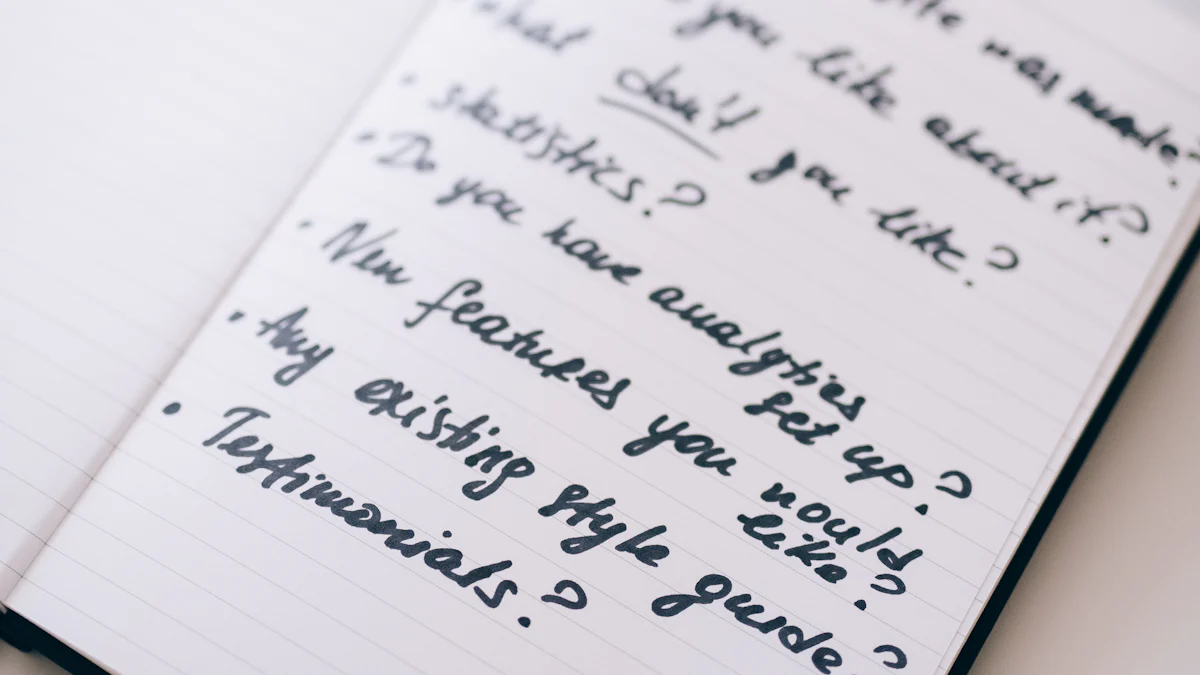 was made?
you like about it?
What don't you like?
• statistics?
• Do you have analytics
set up?
• New features you would
like?
• Any existing style guide?
• Testimonials?